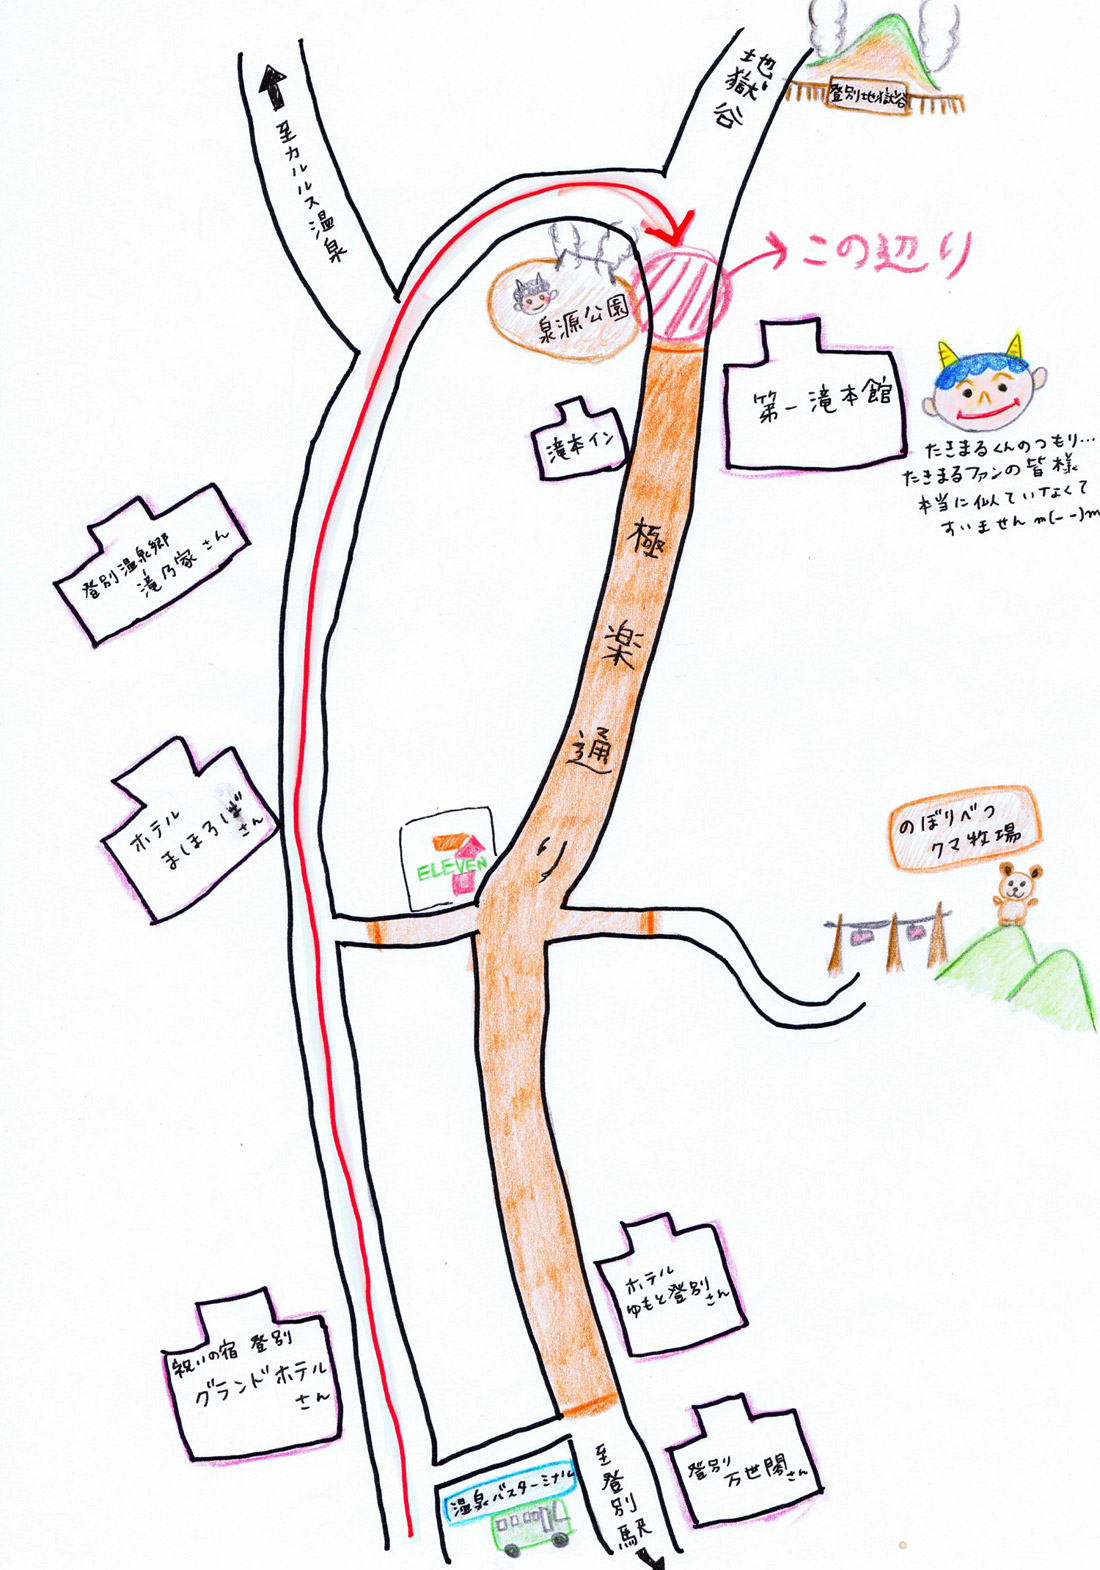 地獄谷
登別地獄谷
至カルルス温泉
この辺り
泉源公園
第一滝本館
滝本イン
たきまるくんのつもり…
たきまるファンの皆様
本当に似ていなくて
すいません m(--)m
登別温泉郷
滝乃家さん
極楽通り
ホテル
まほろば
さん
7
ELEVEN
のぼりべつ
クマ牧場
ホテル
ゆもと登別
さん
祝いの宿 登別
グランドホテル
さん
登別
万世閣さん
温泉バスターミナル
至登別駅